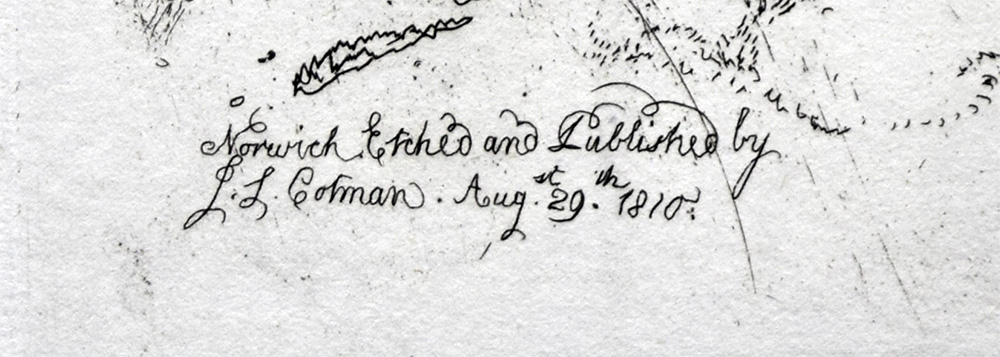 Norwich Etched and Published by
J. S. Cotman. Aug.st 29.th 1810.